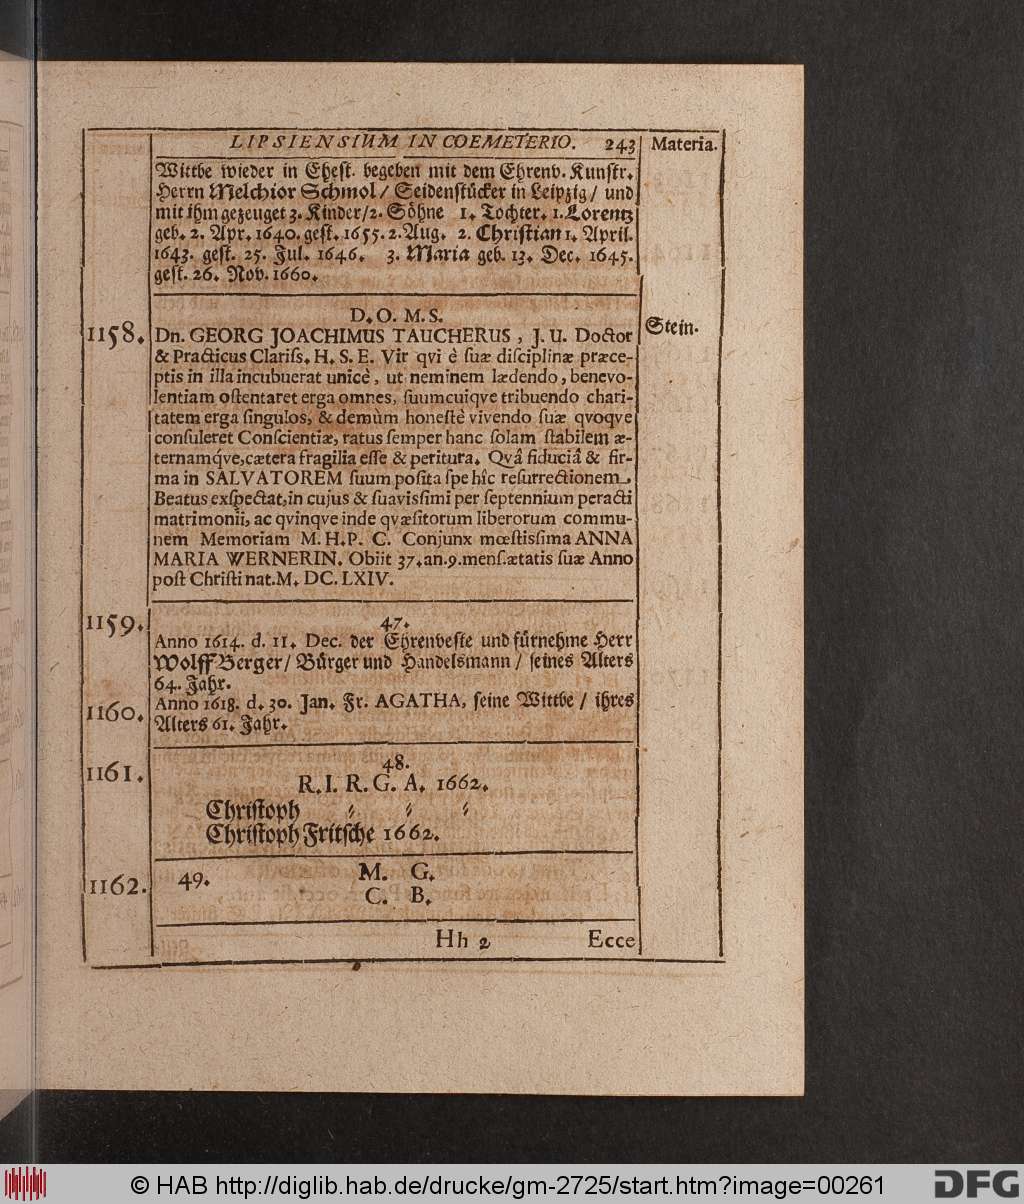 LIPSIENSIUM IN COEMETERIO. 243 Materia.
Wittbe wieder in Ehest. begeben mit dem Ehrenv. Kunstr.
Herrn Melchior Schmol / Seidenstücker in Leipzig / und
mit ihm gezeuget 3. Kinder / 2. Söhne 1. Tochter. 1. Lorentz
geb. 2. Apr. 1640. gest. 1655. 2. Aug. 2. Christian 1. April.
1643. gest. 25. Jul. 1646. 3. Maria geb. 13. Dec. 1645.
gest. 26. Nov. 1660.
D. O. M. S.
1158. Dn. GEORG JOACHIMUS TAUCHERUS, J. U. Doctor Stein.
& Practicus Clariſs. H. S. E. Vir qvi è ſuæ diſciplinæ præce-
ptis in illa incubuerat unicè, ut neminem lædendo, benevo-
lentiam oſtentaret erga omnes, ſuumcuiqve tribuendo chari-
tatem erga ſingulos, & demùm honeſtè vivendo ſuæ qvoqve
conſuleret Conſcientiæ, ratus ſemper hanc ſolam ſtabilem æ-
ternamq́ve, cætera fragilia eſſe & peritura. Qvâ fiduciâ & fir-
ma in SALVATOREM ſuum poſita ſpe hîc reſurrectionem.
Beatus exſpectat, in cujus & ſuavisſimi per ſeptennium peracti
matrimonii, ac qvinqve inde qvæſitorum liberorum commu-
nem Memoriam M. H. P. C. Conjunx mœſtisſima ANNA
MARIA WERNERIN. Obiit 37. an. 9. menſ. ætatis ſuæ Anno
poſt Chriſti nat. M. DC. LXIV.
1159. 47.
Anno 1614. d. 11. Dec. der Ehrenveste und fürnehme Herr
Wolff Berger / Bürger und Handelsmann / seines Alters
64. Jahr.
1160. Anno 1618. d. 30. Jan. Fr. AGATHA, seine Wittbe / ihres
Alters 61. Jahr.
1161. 48.
R. I. R. G. A. 1662.
Christoph ⸗ ⸗ ⸗
Christoph Fritsche 1662.
1162. 49. M. G.
C. B.
Hh 2 Ecce
© HAB http://diglib.hab.de/drucke/gm-2725/start.htm?image=00261
DFG